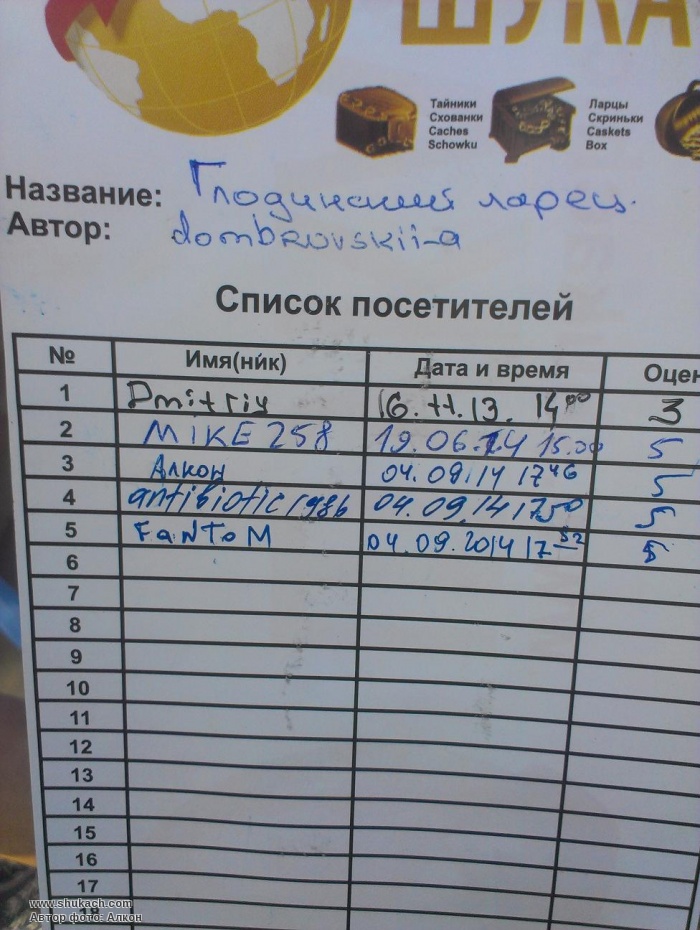 ШУКА
Тайники
Схованки
Caches
Schowku
Ларцы
Скриньки
Caskets
Box
Название: ларец.
Автор: dombrovskii-a
Список посетителей
№ Имя(ник) Дата и время Оцен
1 Dmitriy 16.11.13. 14 00 3
2 MIKE 258 19.06.14 15.00 5
3 Алкон 04.09.14 17 46 5
4 antibiotic1986 04.09.14 17 50 5
5 FaNToM 04.09.2014 17 52 5
6
7
8
9
10
11
12
13
14
15
16
17
18
www.shukach.com
Автор фото: Алкон